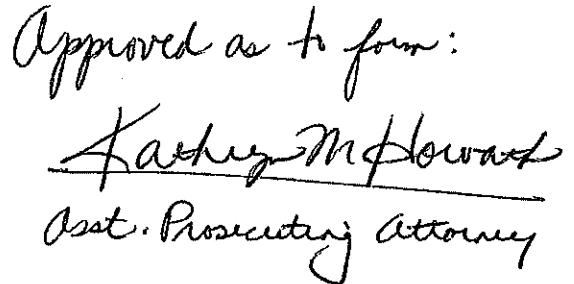 Approved as to form:
Kathryn M Horvath
Asst. Prosecuting Attorney